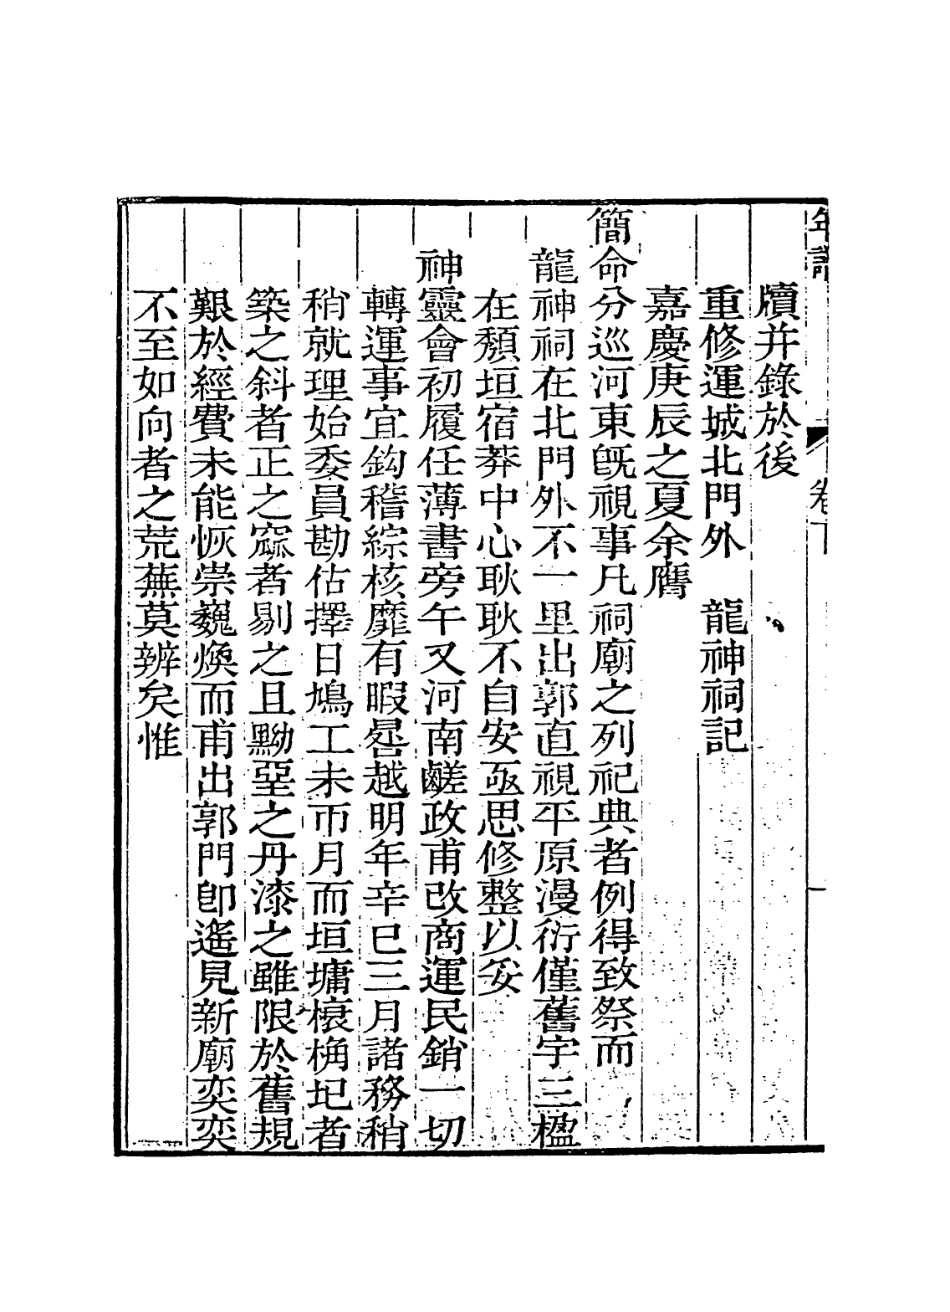 年譜 卷下
牘并錄於後
重修運城北門外 龍神祠記
嘉慶庚辰之夏余膺
簡命分巡河東旣視事凡祠廟之列祀典者例得致祭而
龍神祠在北門外不一里出郭直視平原漫衍僅舊宇三楹
在頹垣宿莽中心耿耿不自安亟思修整以妥
神靈會初履任薄書旁午又河南鹺政甫改商運民銷一切
轉運事宜鈎稽綜核靡有暇晷越明年辛巳三月諸務稍
稍就理始委員勘估擇日鳩工未帀月而垣墉榱桷圮者
築之斜者正之窳者剔之且黝堊之丹漆之雖限於舊規
艱於經費未能恢崇巍煥而甫出郭門卽遙見新廟奕奕
不至如向者之荒蕪莫辨矣惟